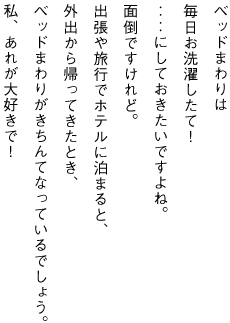 ベッドまわりは
毎日お洗濯したて！
：：にしておきたいですよね。
面倒ですけれど。
出張や旅行でホテルに泊まると、
外出から帰ってきたとき、
ベッドまわりがきちんてなっているでしょう。
私、あれが大好きで！